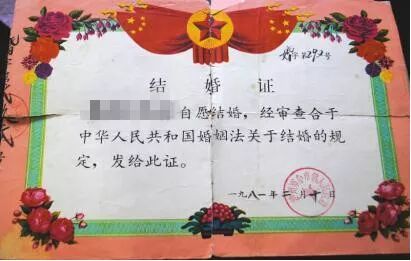 婚字第292号
结婚证
自愿结婚，经审查合于
中华人民共和国婚姻法关于结婚的规
定，发给此证。
一九八一年二月十日